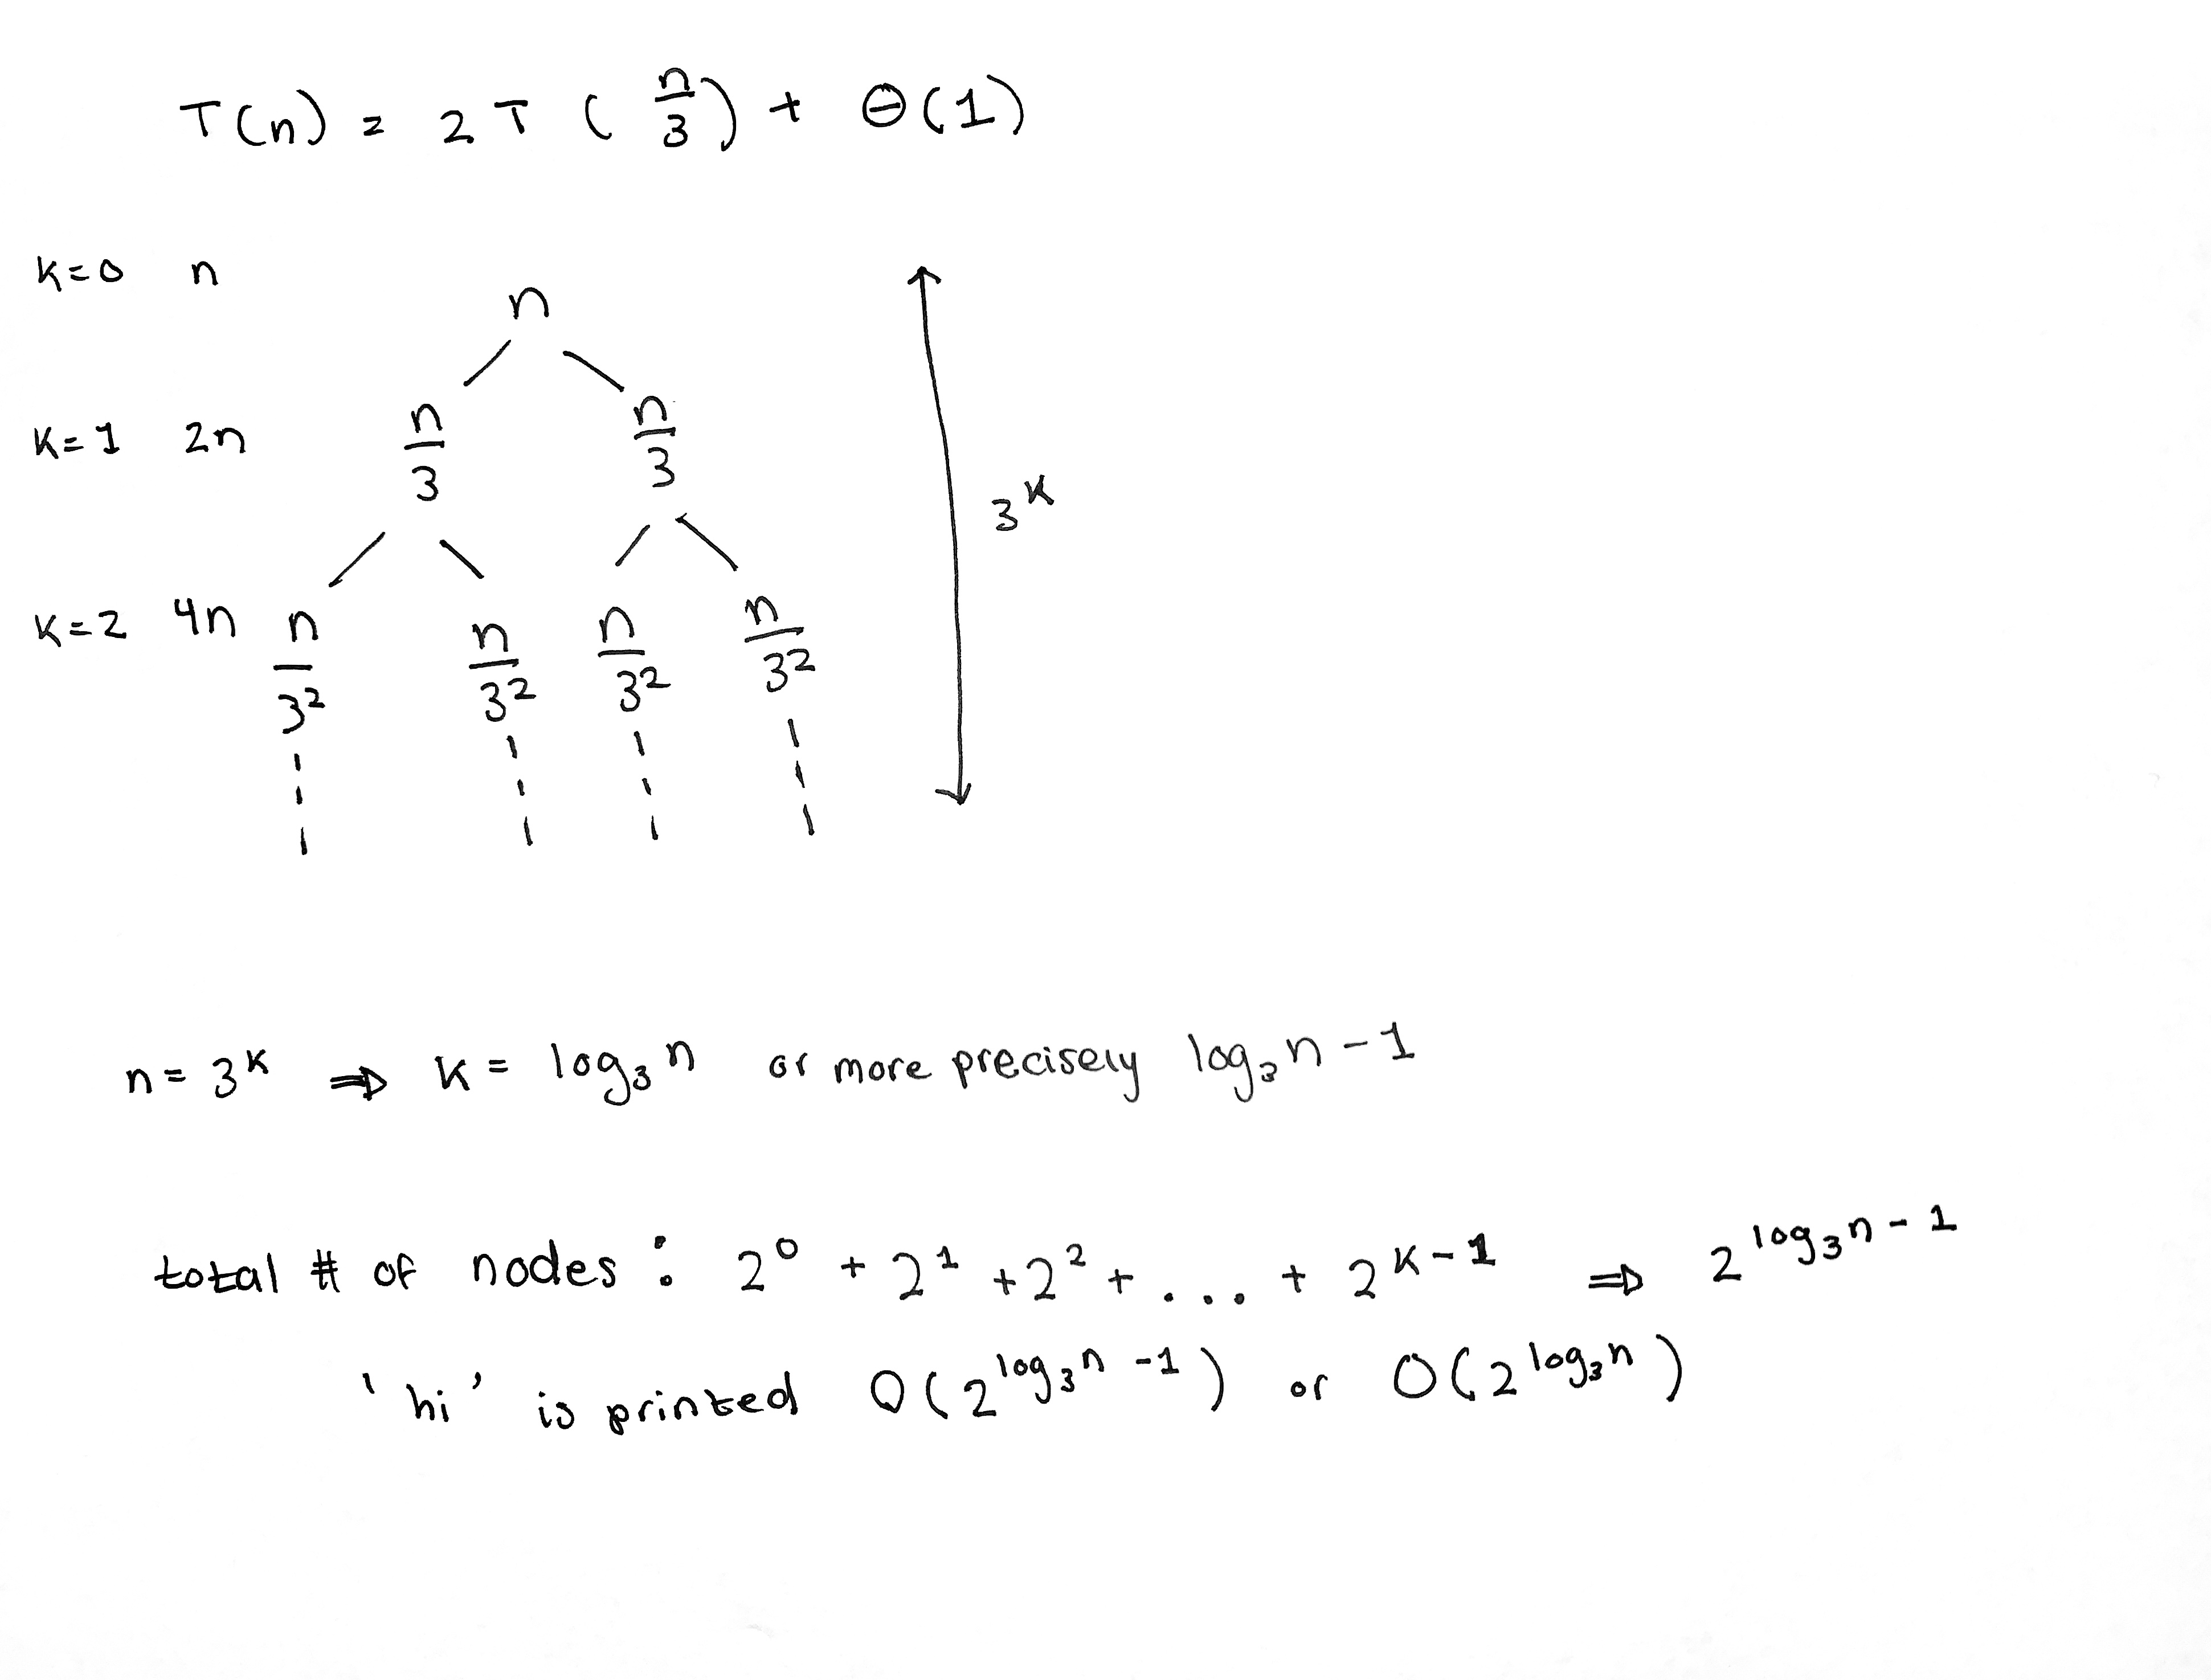 T(n) = 2T(n/3) + Θ(1)
k=0 n
n
k=1 2n n/3 n/3
3^k
k=2 4n n/3^2 n/3^2 n/3^2 n/3^2
n = 3^k ⇒ k = log₃n or more precisely log₃n - 1
total # of nodes : 2^0 + 2^1 + 2^2 + ... + 2^(k-1) ⇒ 2^(log₃n - 1)
'hi' is printed O(2^(log₃n - 1)) or O(2^(log₃n))